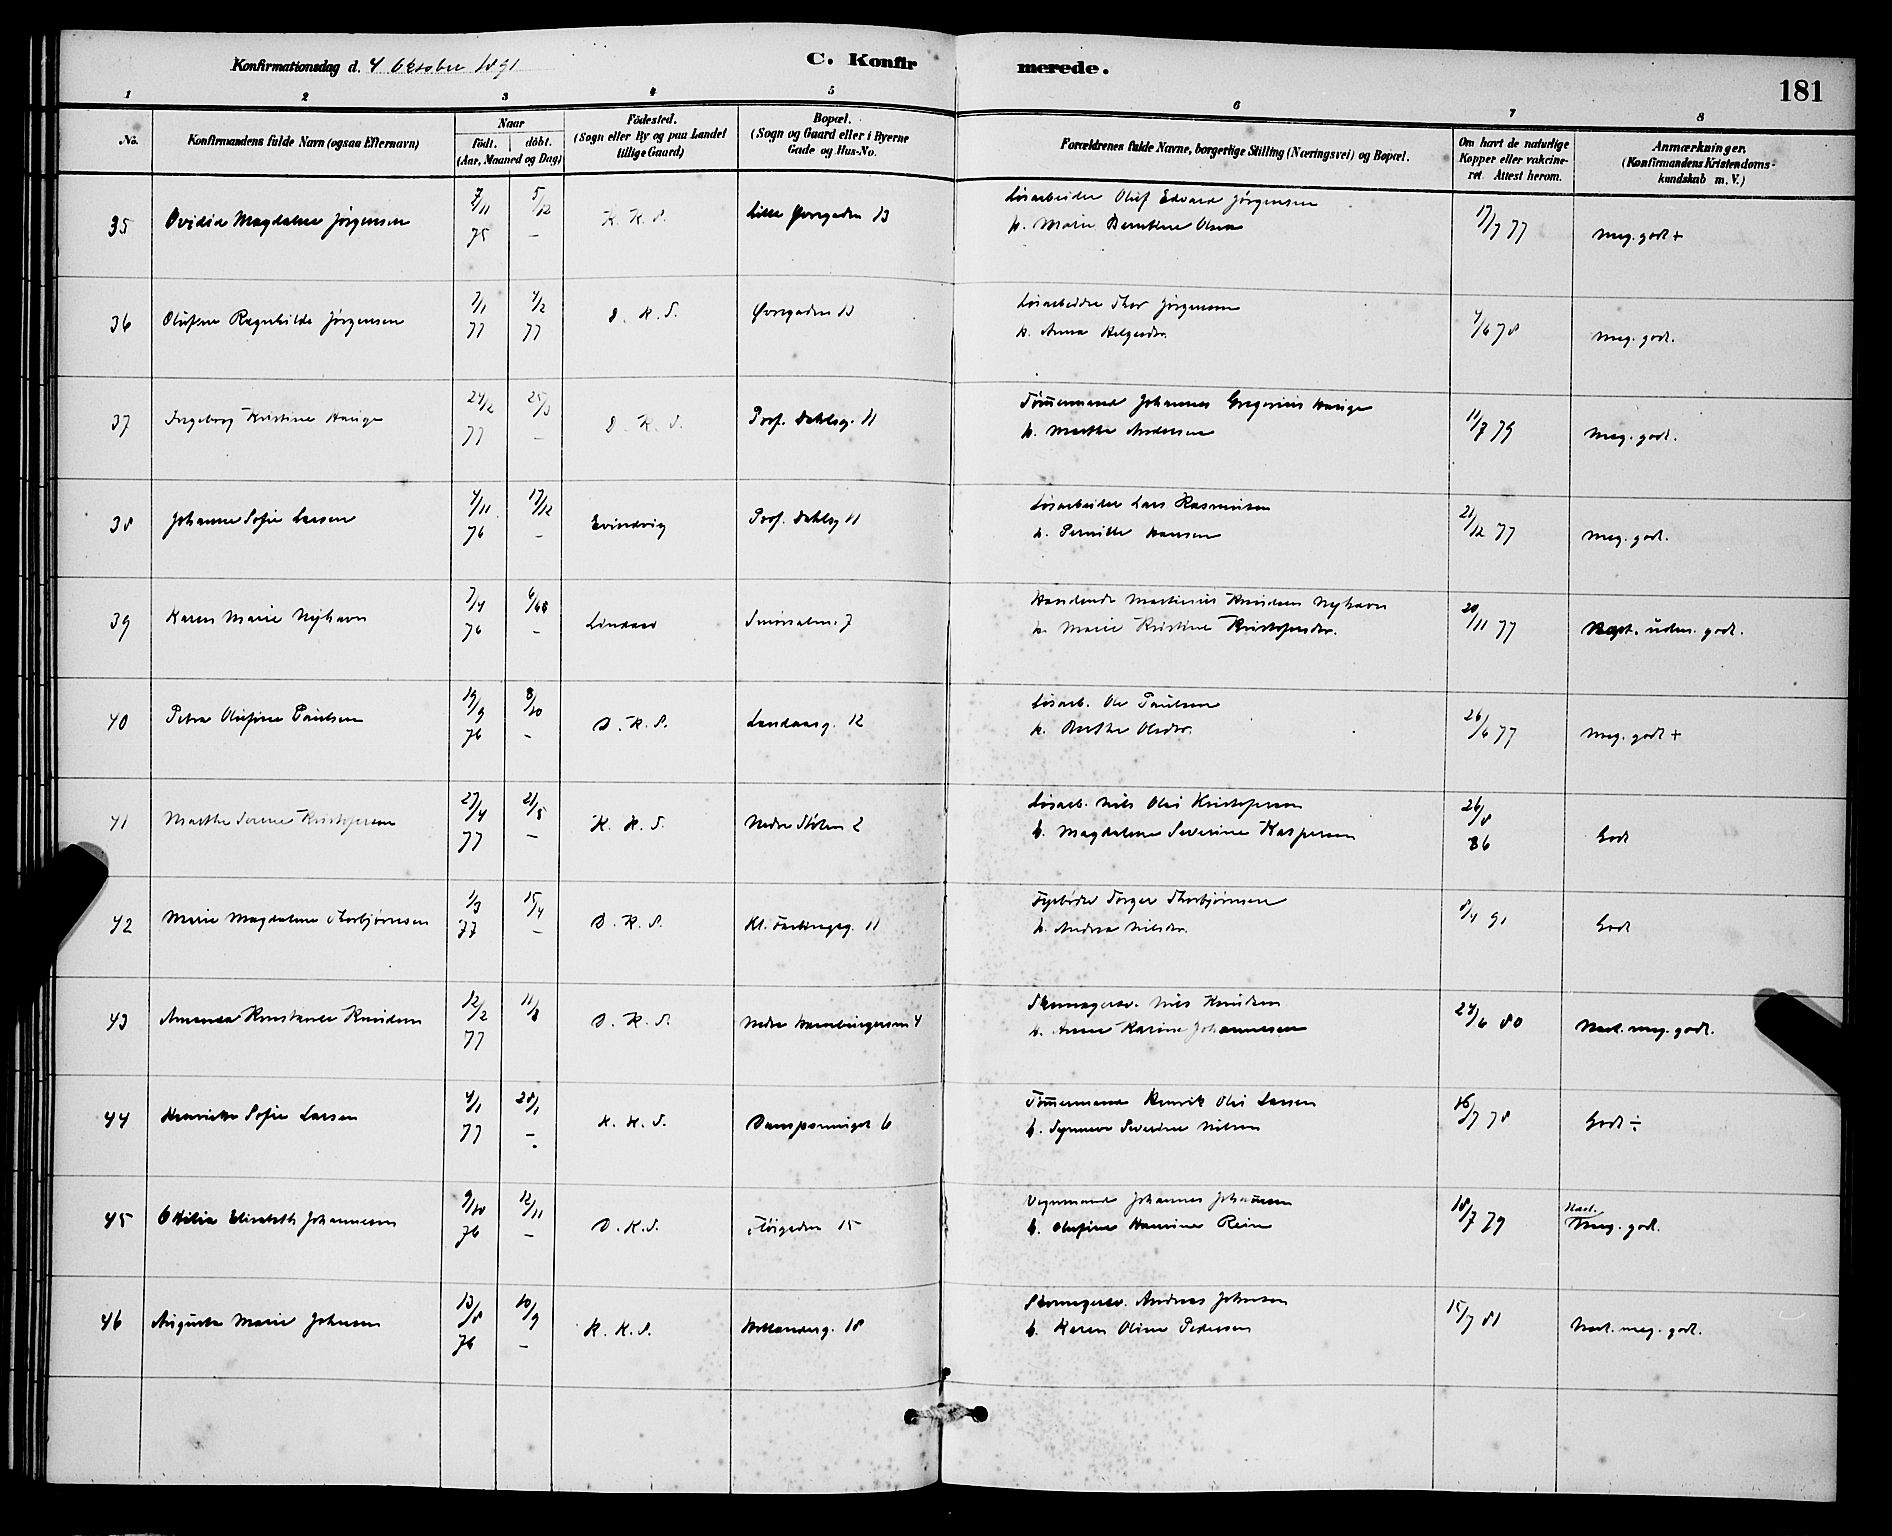 Konfirmationsdag d. 4 Oktober 1891
C. Konfirmerede.
181
1 2 3 4 5 6 7 8
No.
Konfirmandens fulde Navn (ogsaa Efternavn)
Naar
födt. döbt.
(Aar, Maaned og Dag)
Födested.
(Sogn eller By og paa Landet
tillige Gaard)
Bopæl.
(Sogn og Gaard eller i Byerne
Gade og Hus-No.
Forældrenes fulde Navne, borgerlige Stilling (Næringsvei) og Bopæl.
Om havt de naturlige
Kopper eller vakcine-
ret. Attest herom.
Anmærkninger.
(Konfirmandens Kristendoms-
kundskab m. V.)
35 Ovidia Magdalene Jörgensen 7/11 75 5/12 – K. K. S. Lille Øvregaden 13
Lösarbeider Oluf Edvard Jörgensen
h. Marie Berntine Olsen
17/7 77 Meg. godt +
36 Olufine Ragnhilde Jörgensen 7/1 77 4/2 77 D. K. S. Øvregaden 13
Lösarbeider Thor Jörgensen
h. Anna Helgesdr.
4/6 78 Meg. godt.
37 Ingeborg Kristine Hauge 24/2 77 25/3 – D. K. S. Prof. Dahlsg. 11
Tömmermand Johannes Gregorius Hauge
h. Marthe Andersen
11/7 79 Meg. godt.
38 Johanne Sofie Larsen 4/11 76 17/12 – Evindvig Prof. Dahlsg 11
Lösarbeider Lars Rasmussen
h. Pernille Hansen
21/12 77 Meg. godt.
39 Karen Marie Nyhavn 7/4 76 – Lindaas 7
Martinius Knudsen Nyhavn
h. Marie Kristine Kristofersdr.
20/11 77 godt.
40 Petra Olufine Paulsen 19/9 76 8/10 – D. K. S. Landaasg. 12
Lösarb. Ole Paulsen
h. Berthe Olsdtr.
26/6 77 Meg. godt +
41 Marthe Serene Kristofersen 27/4 77 21/5 – K. K. S. Nedre Stölen 2
Lösarb. Nils Olai Kristofersen
h. Magdalene Severine Kaspersen
26/8 86 Godt
42 Marie Magdalene Thorbjörnsen 1/3 77 15/4 – D. K. S. Kl. 11
Fyrböder Torger Thorbjörnsen
h. Andrea Nilsdr.
8/4 91 Godt
43 Amanda Konstanse Knudsen 12/2 77 11/3 D. K. S. Nedre Hamburgersm 4
Skomagersv. Nils Knudsen
h. Anne Karine Johannesen
24/6 80 Næst. meg. godt.
44 Henrikke Sofie Larsen 4/1 77 28/1 – K. K. S. Damsgaminget 6
Tömmermand Henrik Olai Larsen
h. Synneve Severine Nilsen
16/7 78 Godt ÷
45 Otilia Elisabeth Johannesen 9/10 76 12/11 – D. K. S. 15
Vognmand Johannes Johannesen
h. Olufine Hansine Rein
18/7 79 Næst. Meg. godt.
46 Augusta Marie Johnsen 13/8 76 10/9 – K. K. S. Hollenderg. 18
Skomagersv. Andreas Johnsen
h. Karen Oline Pedersen
15/7 81 Næst. meg. godt.